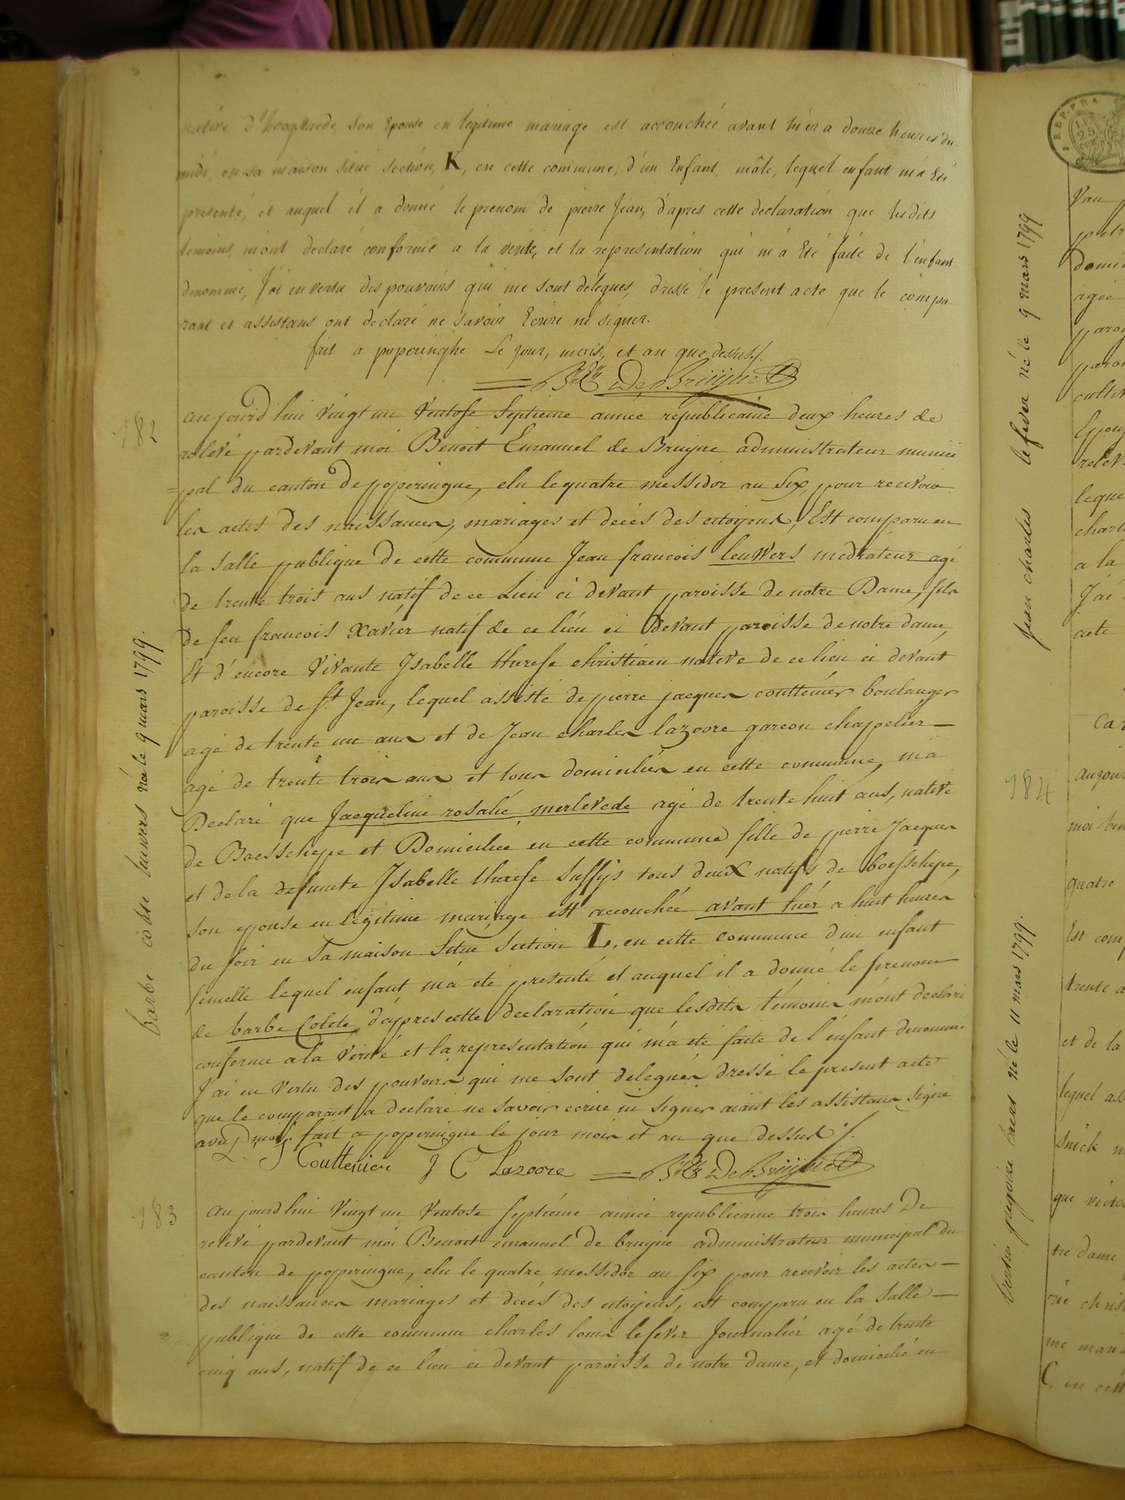 native d'hoogstaede son Epouse en légitime mariage est accouchée avant hiér a douze heures du
midi, en sa maison situé section, K, en cette commune, d'un Enfant, mâle, lequel enfant m'a Eté
présenté, et auquel il a donné le prenom de pierre Jean, d'apres cette declaration que lesdits
temoins, m'ont declaré conforme a la verité, et la représentation qui m'a Eté faite de l'enfant
denommé, J'ai en vertu des pouvoirs qui me sont delegués, dressé le présent acte que le compa-
rant et assistans ont declaré ne savoir Ecrire ni signer.
fait a poperinghe Le jour, mois, et an que dessus /.
De Bruÿne
182
aujourd'hui vingt un Ventose Septieme année républicaine deux heures de
relevé pardevant moi Benoit Emanuel de Bruyne administrateur munici
=pal du canton de poperingue, elu le quatre messidor an Six, pour recevoir
les actes des naissances, mariages et decès des citoyens, Est comparu en
la salle publique de cette commune Jean francois leuwers mediateur agé
de trente trois ans natif de ce Lieu ci devant paroisse de notre Dame, fils
de feu francois Xavier natif de ce lieu ci Devant paroisse de notre dame,
Et d'encore Vivante Isabelle therese christiaen native de ce lieu ci devant
paroisse de St Jean, lequel assisté de pierre jacques couttenier boulanger
agé de trente un ans et de Jean charles lazoore garcon chappelier —
agé de trente trois ans et tous domiciliés en cette commune, m'a
Declaré que Jacqueline rosalie merlevede agé de trente huit ans, native
de Boesschepe et Domiciliée en cette commune fille de pierre Jacques
et de la defuncte Isabelle therese suffys tous deux natifs de boesschepe,
son epouse en legitime mariage est accouchée avant hiér a huit heures
du soir en sa maison situé section L, en cette commune d'un enfant
femelle lequel enfant m'a eté presenté et auquel il a donné le prenom
de barbe Colete, d'apres cette declaration que lesdits témoins m'ont declaré
conforme a la verité et la représentation qui m'a été faite de l'énfant denommé
J'ai en vertu des pouvoirs qui me sont delegués dressé le present acte
que le comparant a declaré ne savoir ecrire ni signer aiant les assistans signé
avec moi, fait a poperingue le jour mois et an que dessus /.
Couttenier J C Lazoore De Bruÿne
183
aujourdhui vingt un Ventose septiéme année republicaine trois heures De
relevé pardevant moi Benoit emanuel de bruyne administrateur municipal du
canton de poperingue, elu le quatre messidor an six pour recevoir les actes —
des naissances mariages et decès des citoyens, est comparu en la salle —
publique de cette commune charles louis lefever Journalier agé de trente
cinq ans, natif de ce lieu ci devant paroisse de notre dame, et domicilié en
barbe colete leuwers née le 9 mars 1799.
jean charles lefever né le 9 mars 1799
né le 11 mars 1799.
184
aujour
moi ben
quatre
Est com
trente a
et de la
lequel ass
que victo
tre dame
C, en cett